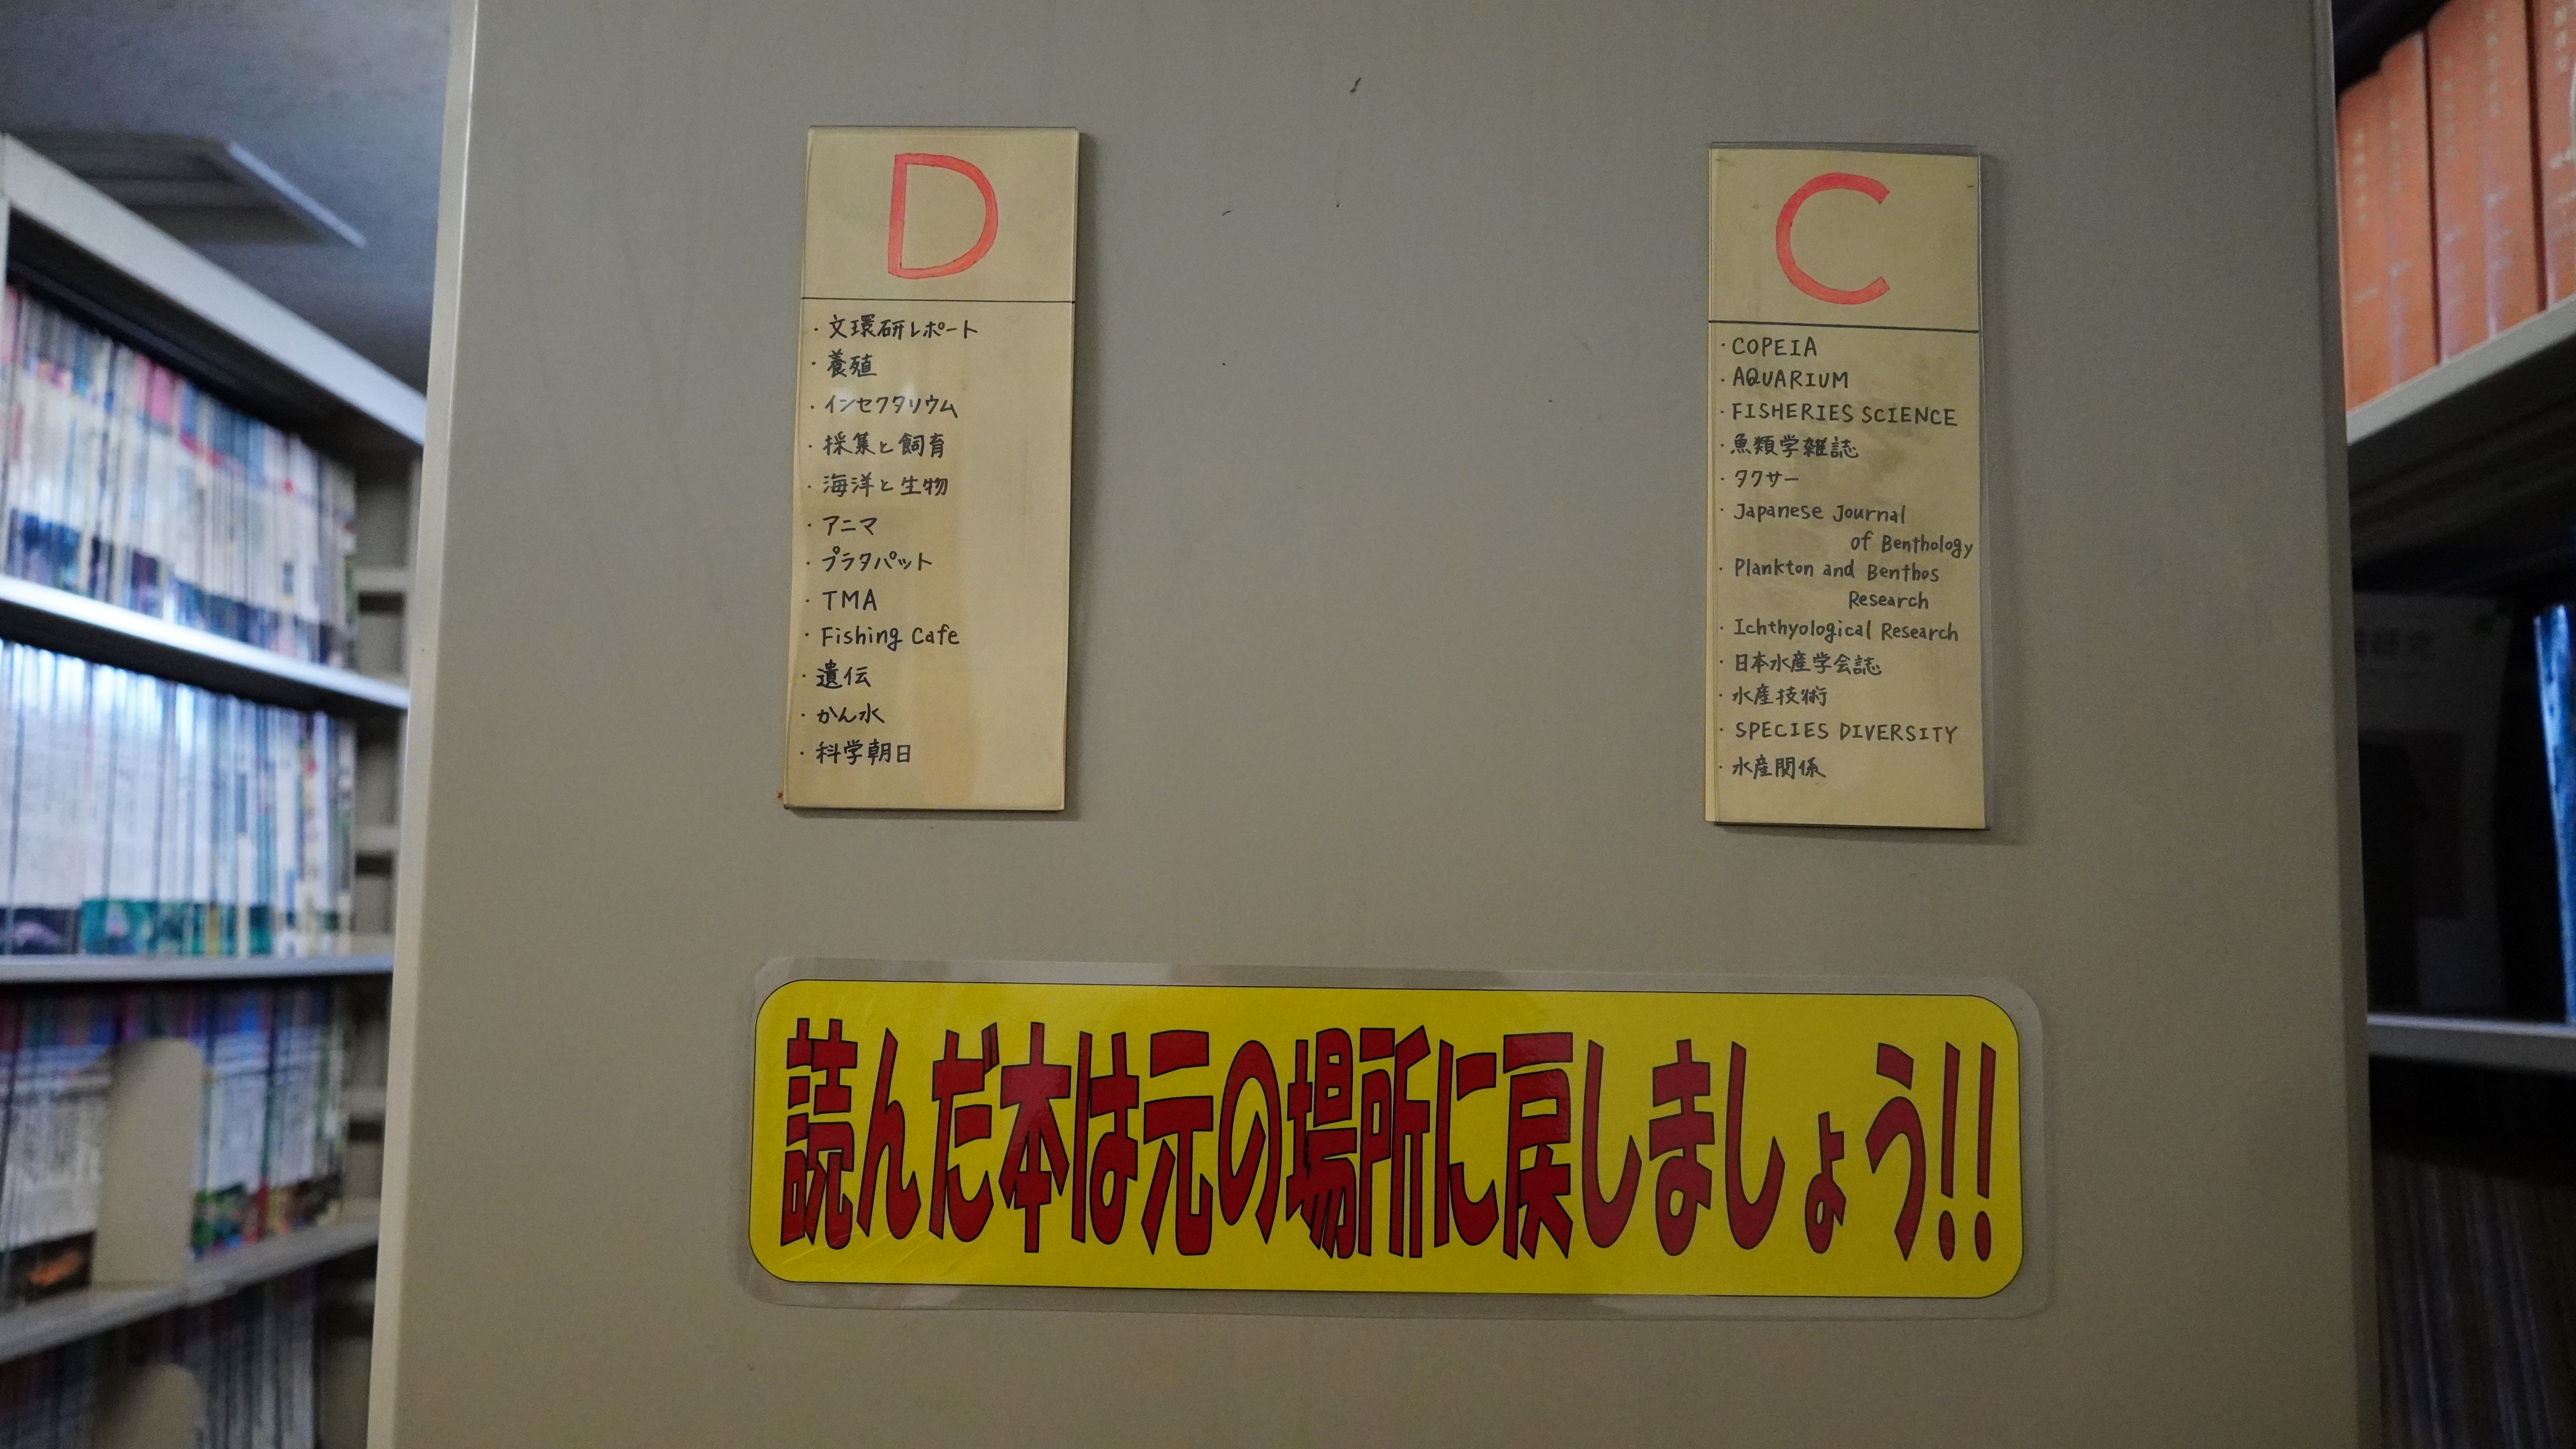 D
・文環研レポート
・養殖
・インセクタリウム
・採集と飼育
・海洋と生物
・アニマ
・プラタパット
・TMA
・Fishing Cafe
・遺伝
・かん水
・科学朝日
C
・COPEIA
・AQUARIUM
・FISHERIES SCIENCE
・魚類学雑誌
・タクサー
・Japanese Journal
of Benthology
・Plankton and Benthos
Research
・Ichthyological Research
・日本水産学会誌
・水産技術
・SPECIES DIVERSITY
・水産関係
読んだ本は元の場所に戻しましょう!!